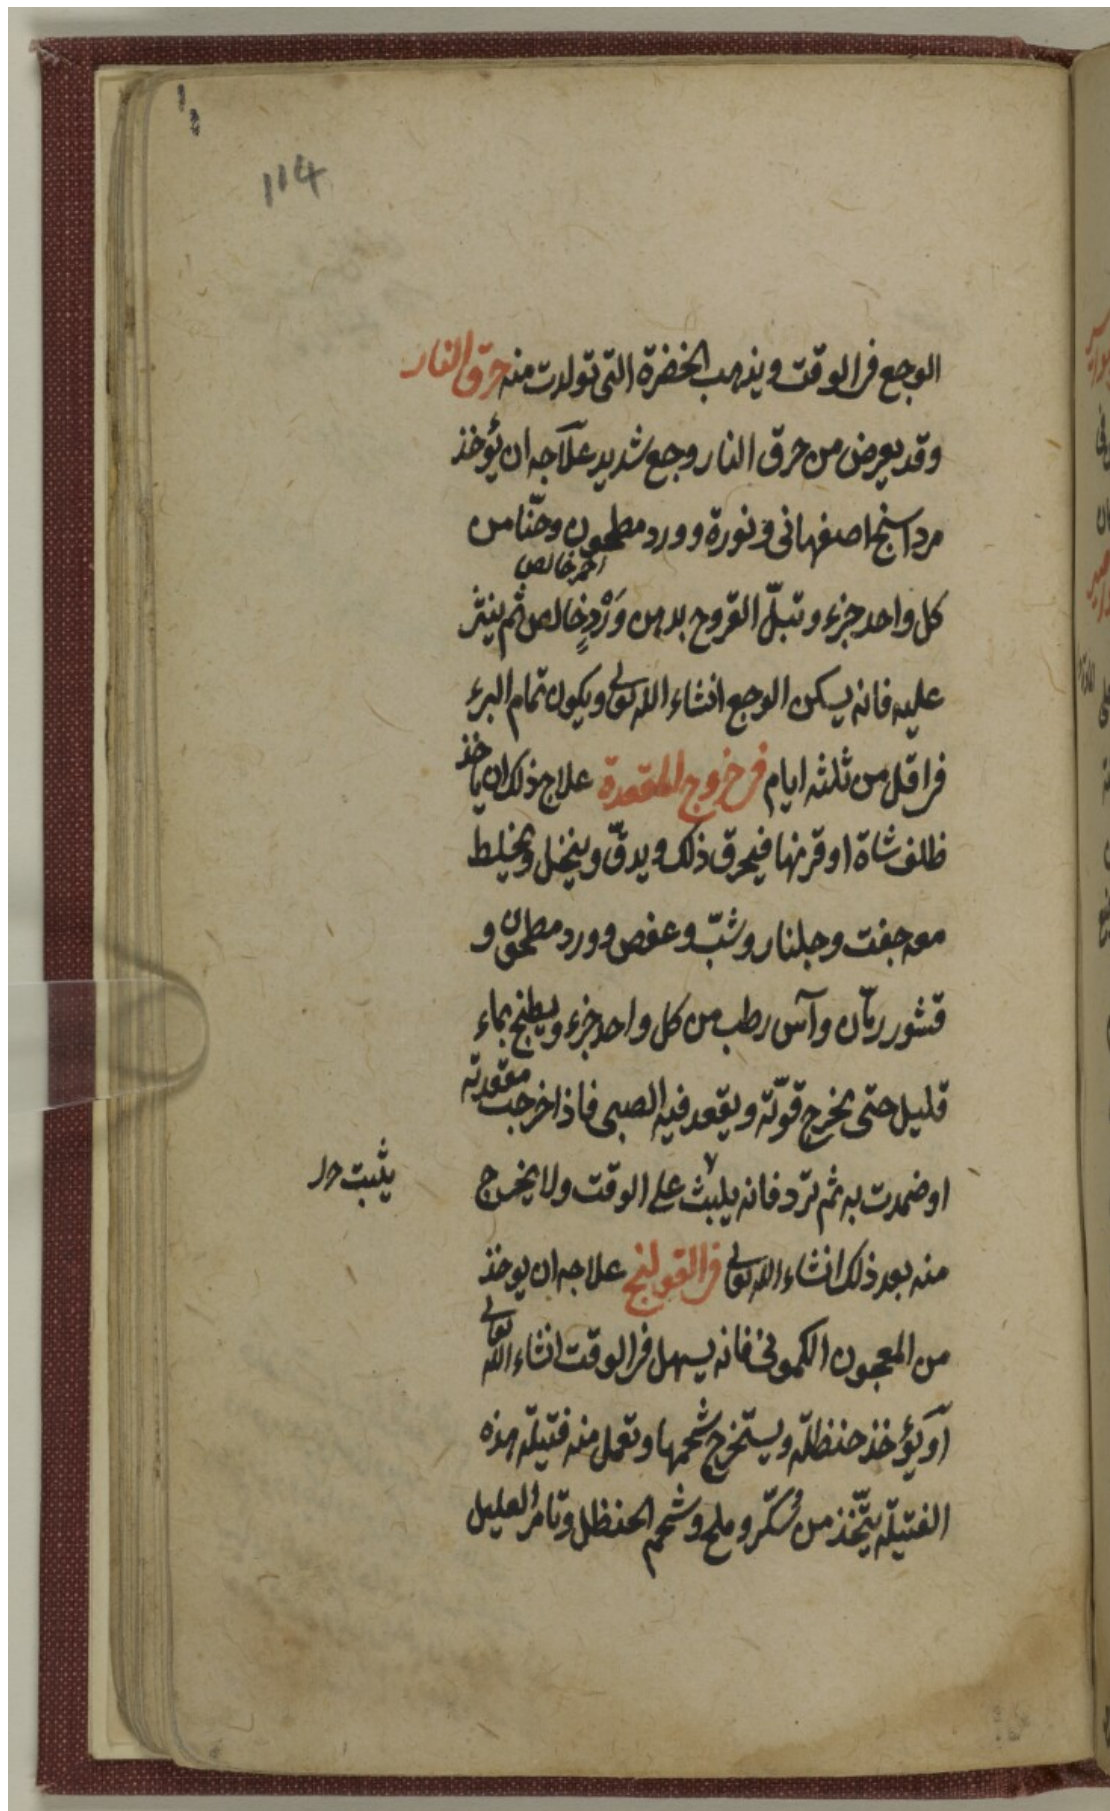 114
الوجع فى الوقت ويذهب الخضرة التى تولدت منه حرق النار
وقد يعرض من حرق النار وجع شديد علاجه ان يؤخذ
مرداسنج اصفهانى ونورة وورد مطحون وحنّا من
احمر خالص
كل واحد جزء وتبلّ القروح بدهن وَرْدٍ خالص ثم ينثر
عليه فانه يسكن الوجع انشاء الله تعالى ويكون تمام البرء
فى اقل من ثلثه ايام فى خروج المقعدة علاج ذلك ان ياخذ
ظلف شاة او قرنها فيحرق ذلك ويدقّ وينخل ويخلط
معه جفت وجلنار وشبّ وعفص وورد مطحون و
قشور رمّان وآس رطب من كل واحد جزء ويطبخ بماء
قليل حتى يخرج قوّته ويقعد فيه الصبى فاذا خرجت مقعدته
او ضمدت به ثم تردّ فانه يلبث على الوقت ولا يخرج
يثبت
منه بعد ذلك انشاء الله تعالى فى القولنج علاجه ان يوخذ
من المعجون الكمونى فانه يسهل فى الوقت انشاء الله تعالى
او يؤخذ حنظلة ويستخرج شحمها وتعمل منه فتيلة هذه
الفتيلة يتّخذ من سُكّر وملح وشحم الحنظل وتامر العليل